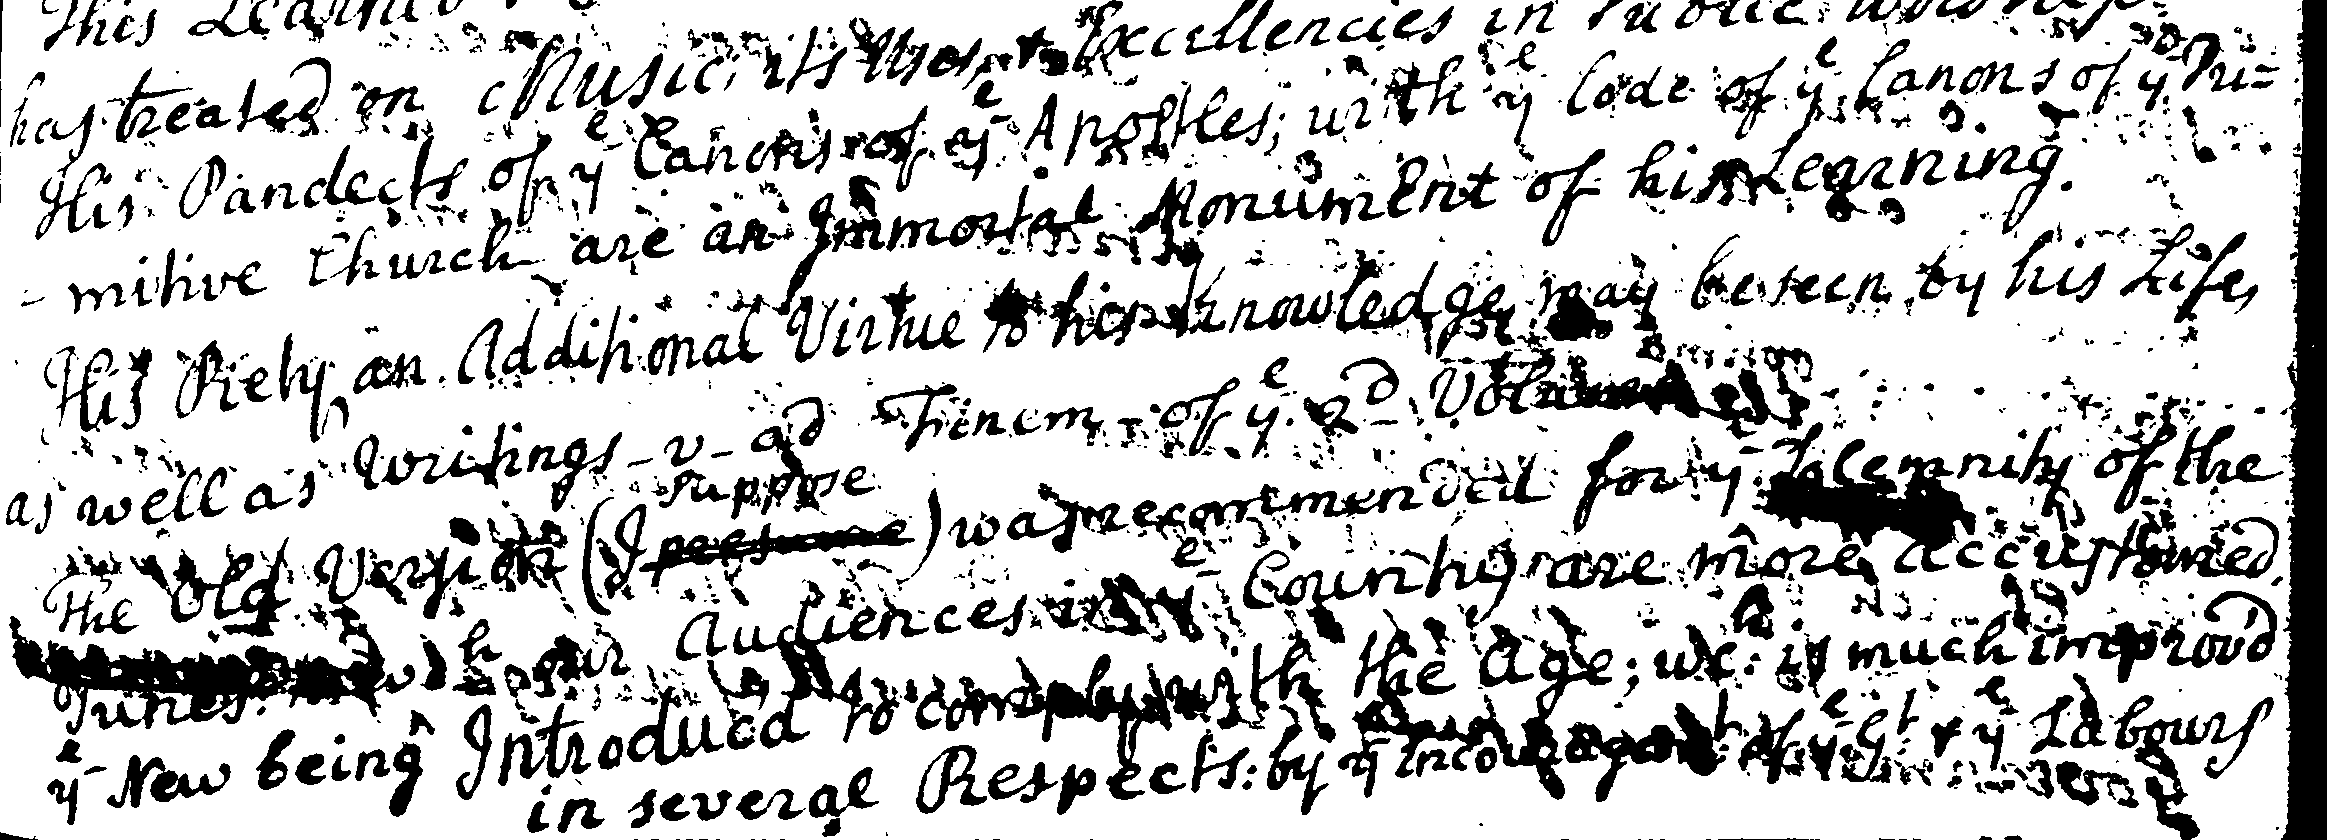 This Learned
has treated on Music, its Uses, & Excellencies in Publie worship
His Pandects of yᵉ Canons of yᵉ Apostles; with yᵉ Code of yᵉ Canons of yᵉ Pri=
- mitive Church are an Immortal Monument of his Learning.
His Piety an Additional Virtue to his Knowledge may be seen by his Life,
as well as writings - v - ad Finem - of yᵉ 2ᴰ Volume
suppose
The Old Version (I presume) was recommended for yᵉ Solemnity of the
Tunes. wᶜʰ our Audiences in yᵉ Country are more accustomed,
yᵉ New being Introduc'd to comply with the Age; wᶜʰ is much improv'd
in several Respects: by yᵉ incouragemᵗ of yᵉ Gᵗ & yᵉ Labours